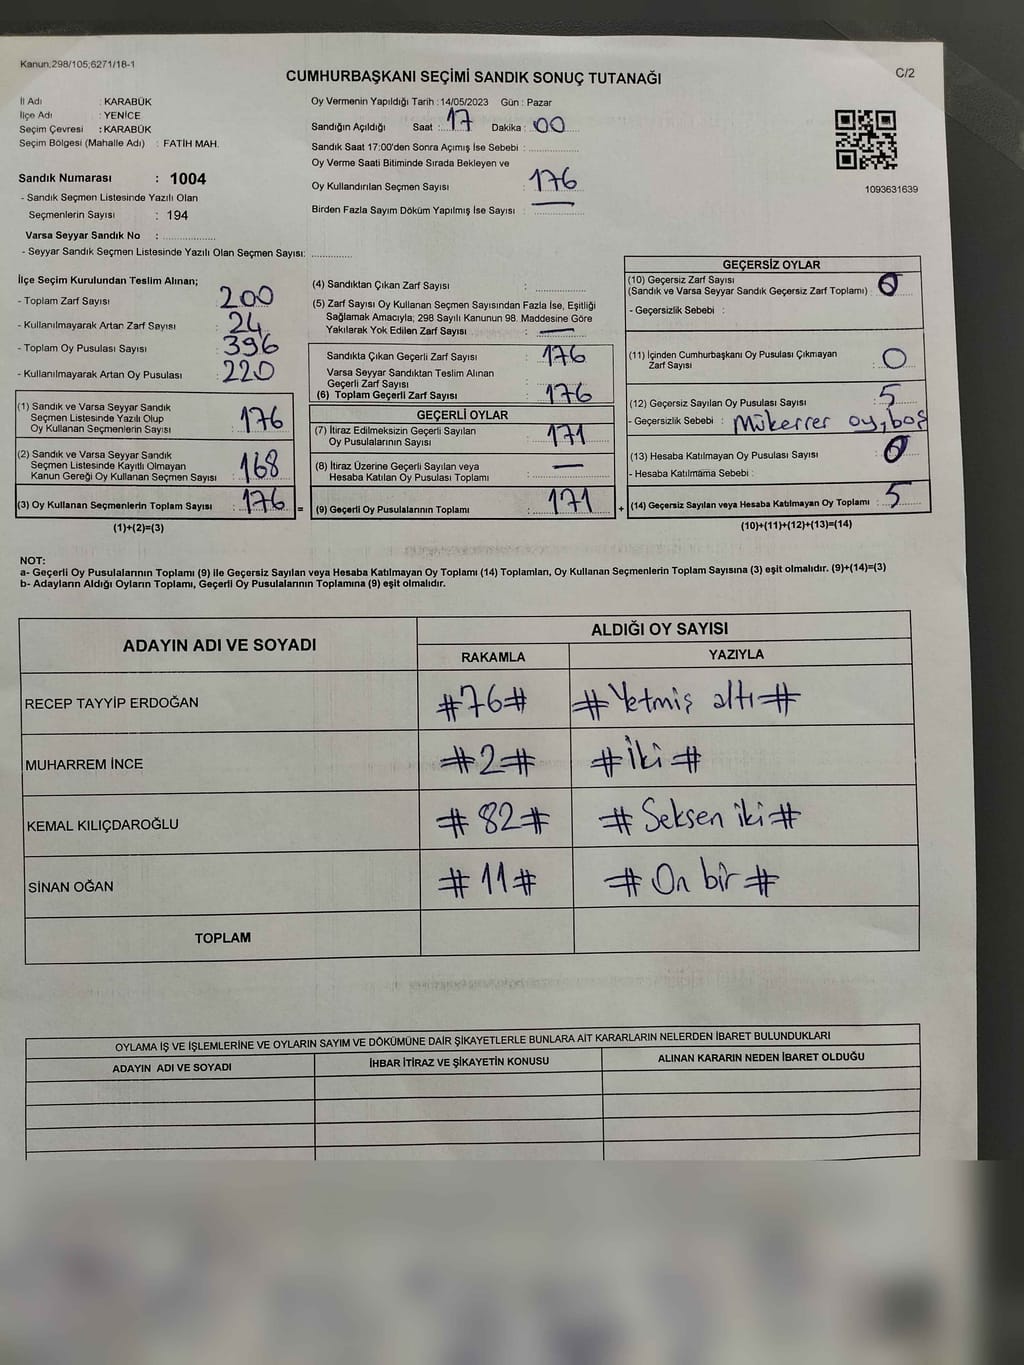 Kanun;298/105;6271/18-1
C/2
CUMHURBAŞKANI SEÇİMİ SANDIK SONUÇ TUTANAĞI
İl Adı : KARABÜK
İlçe Adı : YENİCE
Seçim Çevresi : KARABÜK
Seçim Bölgesi (Mahalle Adı) : FATİH MAH.
Sandık Numarası : 1004
- Sandık Seçmen Listesinde Yazılı Olan
Seçmenlerin Sayısı : 194
Varsa Seyyar Sandık No :
- Seyyar Sandık Seçmen Listesinde Yazılı Olan Seçmen Sayısı:
Oy Vermenin Yapıldığı Tarih : 14/05/2023 Gün : Pazar
Sandığın Açıldığı Saat : 17 Dakika : 00
Sandık Saat 17:00'den Sonra Açımış İse Sebebi :
Oy Verme Saati Bitiminde Sırada Bekleyen ve
Oy Kullandırılan Seçmen Sayısı : 176
Birden Fazla Sayım Döküm Yapılmış İse Sayısı : —
1093631639
İlçe Seçim Kurulundan Teslim Alınan;
- Toplam Zarf Sayısı : 200
- Kullanılmayarak Artan Zarf Sayısı : 24
- Toplam Oy Pusulası Sayısı : 396
- Kullanılmayarak Artan Oy Pusulası : 220
(1) Sandık ve Varsa Seyyar Sandık
Seçmen Listesinde Yazılı Olup
Oy Kullanan Seçmenlerin Sayısı : 176
(2) Sandık ve Varsa Seyyar Sandık
Seçmen Listesinde Kayıtlı Olmayan
Kanun Gereği Oy Kullanan Seçmen Sayısı : 168
(3) Oy Kullanan Seçmenlerin Toplam Sayısı : 176 =
(1)+(2)=(3)
(4) Sandıktan Çıkan Zarf Sayısı :
(5) Zarf Sayısı Oy Kullanan Seçmen Sayısından Fazla İse, Eşitliği
Sağlamak Amacıyla; 298 Sayılı Kanunun 98. Maddesine Göre
Yakılarak Yok Edilen Zarf Sayısı : —
Sandıkta Çıkan Geçerli Zarf Sayısı : 176
Varsa Seyyar Sandıktan Teslim Alınan
Geçerli Zarf Sayısı :
(6) Toplam Geçerli Zarf Sayısı : 176
GEÇERLİ OYLAR
(7) İtiraz Edilmeksizin Geçerli Sayılan
Oy Pusulalarının Sayısı : 171
(8) İtiraz Üzerine Geçerli Sayılan veya
Hesaba Katılan Oy Pusulası Toplamı : —
(9) Geçerli Oy Pusulalarının Toplamı : 171 +
GEÇERSİZ OYLAR
(10) Geçersiz Zarf Sayısı
(Sandık ve Varsa Seyyar Sandık Geçersiz Zarf Toplamı) : 0
- Geçersizlik Sebebi :
(11) İçinden Cumhurbaşkanı Oy Pusulası Çıkmayan
Zarf Sayısı : 0
(12) Geçersiz Sayılan Oy Pusulası Sayısı : 5
- Geçersizlik Sebebi : Mükerrer oy, boş
(13) Hesaba Katılmayan Oy Pusulası Sayısı : 0
- Hesaba Katılmama Sebebi :
(14) Geçersiz Sayılan veya Hesaba Katılmayan Oy Toplamı : 5
(10)+(11)+(12)+(13)=(14)
NOT:
a- Geçerli Oy Pusulalarının Toplamı (9) ile Geçersiz Sayılan veya Hesaba Katılmayan Oy Toplamı (14) Toplamları, Oy Kullanan Seçmenlerin Toplam Sayısına (3) eşit olmalıdır. (9)+(14)=(3)
b- Adayların Aldığı Oyların Toplamı, Geçerli Oy Pusulalarının Toplamına (9) eşit olmalıdır.
ADAYIN ADI VE SOYADI
ALDIĞI OY SAYISI
RAKAMLA YAZIYLA
RECEP TAYYİP ERDOĞAN #76# #Yetmiş altı#
MUHARREM İNCE #2# #İki#
KEMAL KILIÇDAROĞLU #82# #Seksen iki#
SİNAN OĞAN #11# #On bir#
TOPLAM
OYLAMA İŞ VE İŞLEMLERİNE VE OYLARIN SAYIM VE DÖKÜMÜNE DAİR ŞİKAYETLERLE BUNLARA AİT KARARLARIN NELERDEN İBARET BULUNDUKLARI
ADAYIN ADI VE SOYADI İHBAR İTİRAZ VE ŞİKAYETİN KONUSU ALINAN KARARIN NEDEN İBARET OLDUĞU